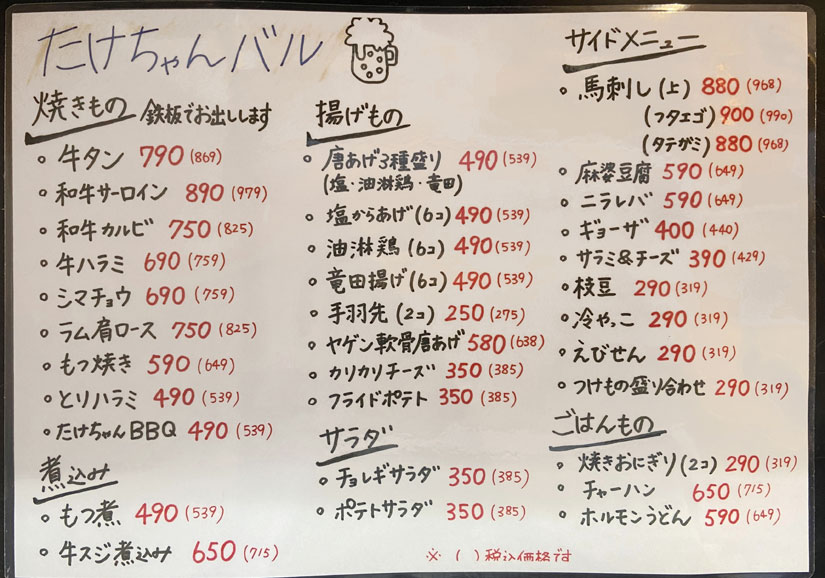 たけちゃんバル
焼きもの 鉄板でお出しします
・牛タン 790(869)
・和牛サーロイン 890(979)
・和牛カルビ 750(825)
・牛ハラミ 690(759)
・シマチョウ 690(759)
・ラム肩ロース 750(825)
・もつ焼き 590(649)
・とりハラミ 490(539)
・たけちゃんBBQ 490(539)
煮込み
・もつ煮 490(539)
・牛スジ煮込み 650(715)
揚げもの
・唐あげ3種盛り 490(539)
(塩・油淋鶏・竜田)
・塩からあげ(6コ) 490(539)
・油淋鶏(6コ) 490(539)
・竜田揚げ(6コ) 490(539)
・手羽先(2コ) 250(275)
・ヤゲン軟骨唐あげ 580(638)
・カリカリチーズ 350(385)
・フライドポテト 350(385)
サラダ
・チョレギサラダ 350(385)
・ポテトサラダ 350(385)
サイドメニュー
・馬刺し(上) 880(968)
(フタエゴ) 900(990)
(タテガミ) 880(968)
・麻婆豆腐 590(649)
・ニラレバ 590(649)
・ギョーザ 400(440)
・サラミ&チーズ 390(429)
・枝豆 290(319)
・冷やっこ 290(319)
・えびせん 290(319)
・つけもの盛り合わせ 290(319)
ごはんもの
・焼きおにぎり(2コ) 290(319)
・チャーハン 650(715)
・ホルモンうどん 590(649)
※( )税込価格です